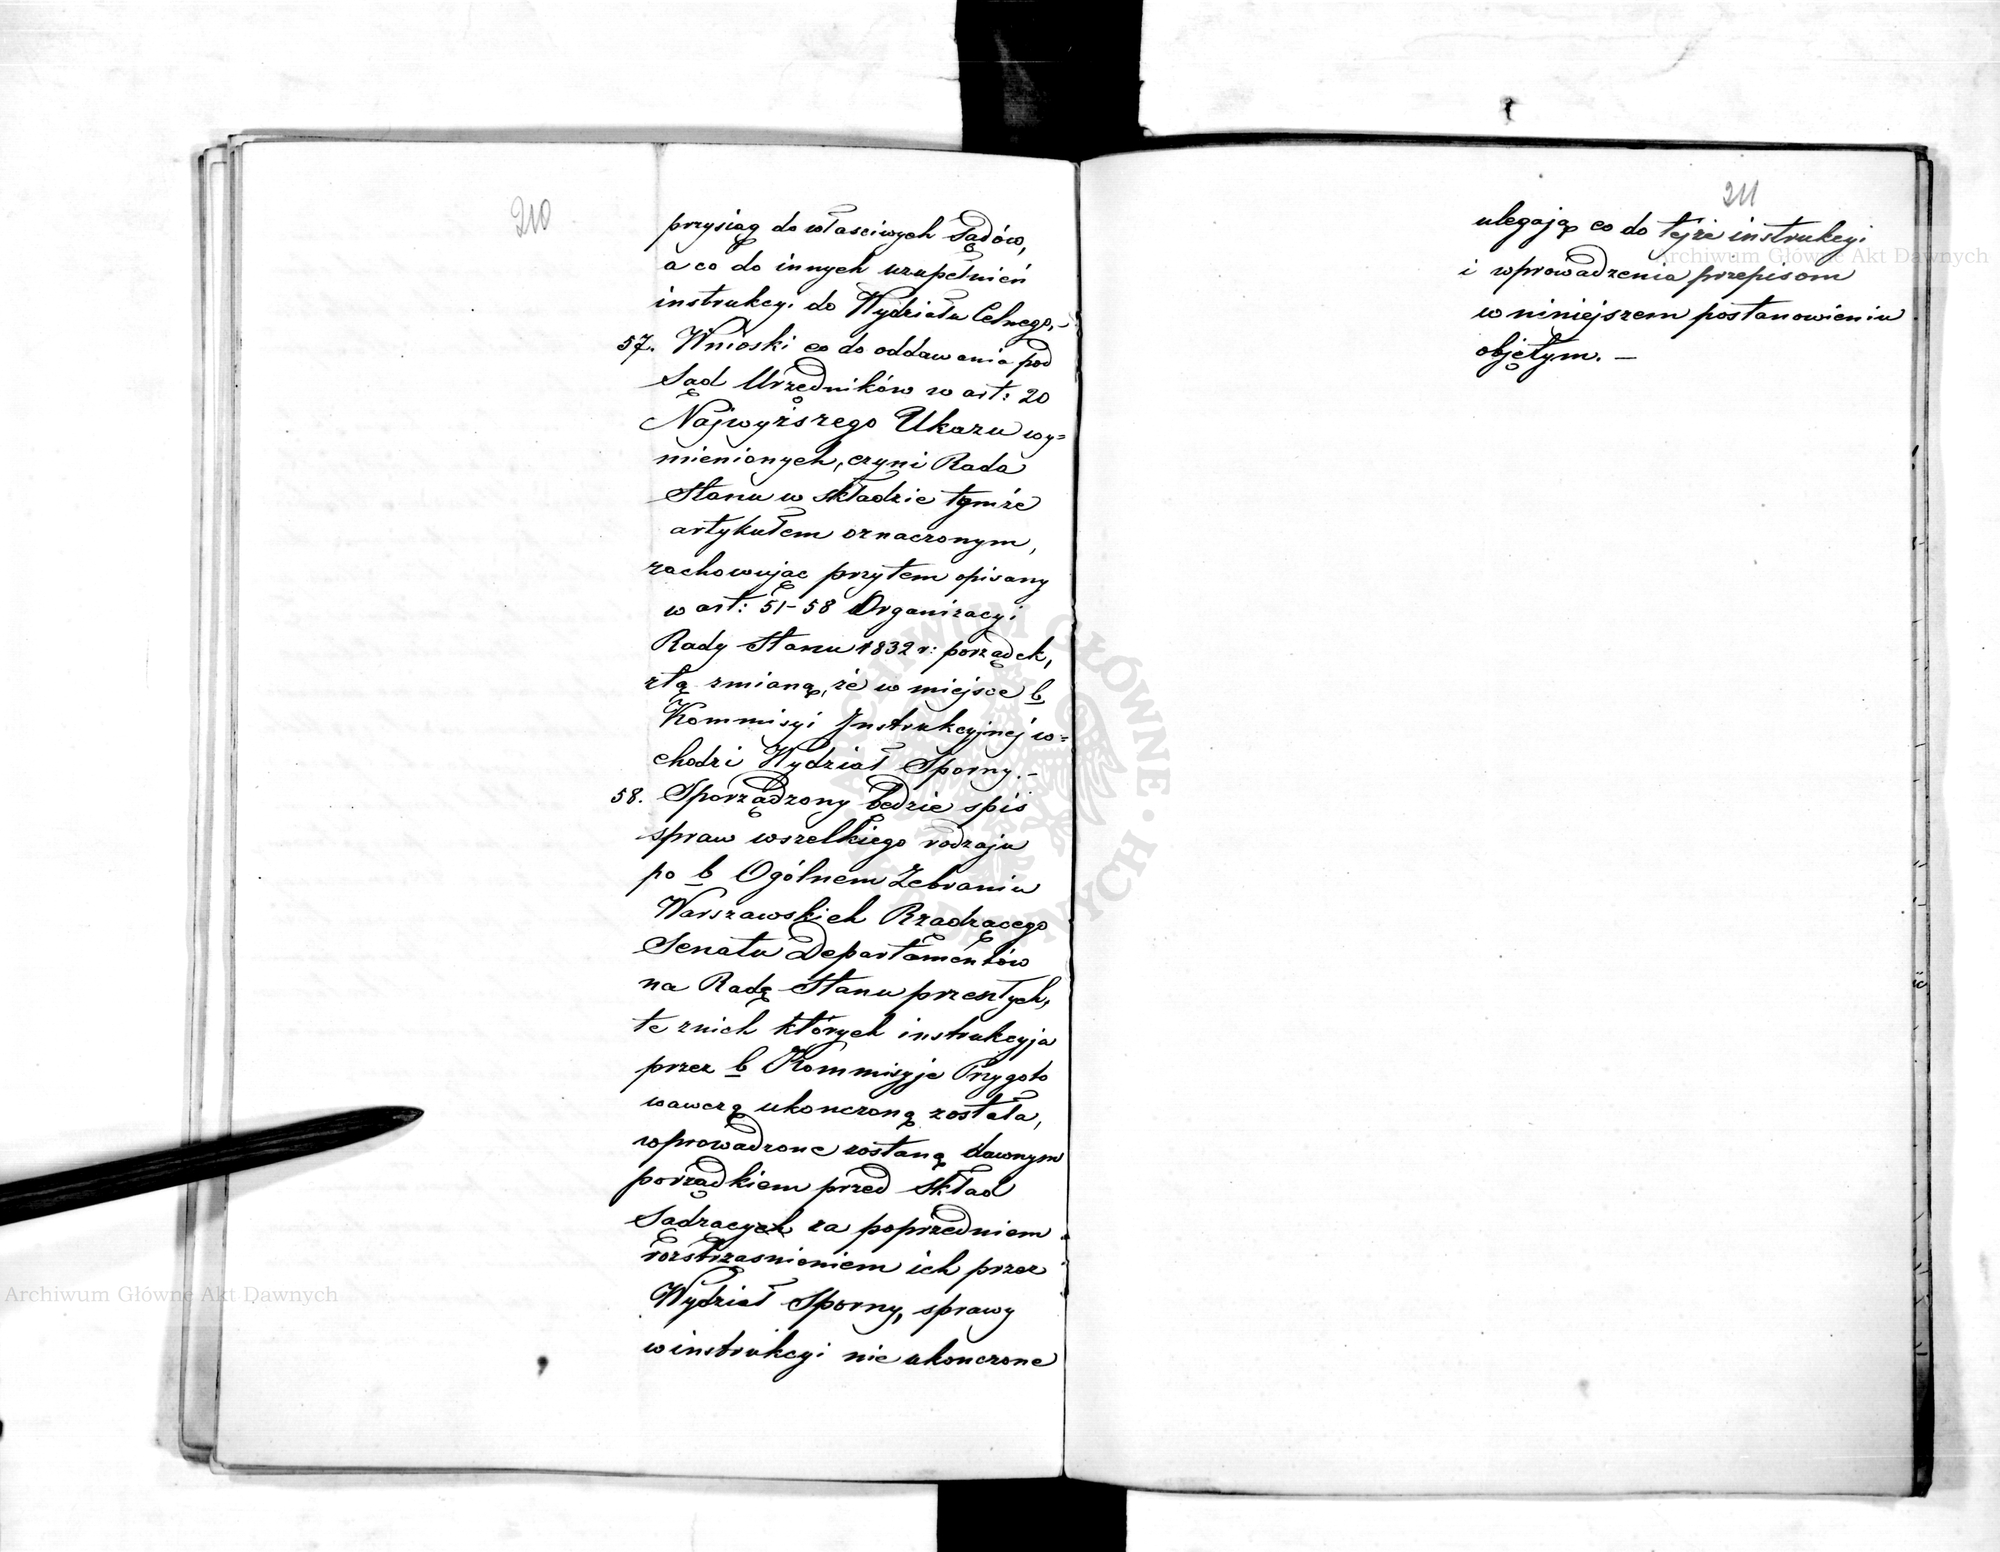 210
przysiąg do właściwych Sądów,
a co do innych uzupełnień
instrukcyi do Wydziału Celnego.–
57. Wnioski co do oddawania pod
Sąd Urzędników w art: 20
Najwyższego Ukazu wy=
mienionych, czyni Rada
Stanu w składzie tymże
artykułem oznaczonym,
zachowując przytem opisany
w art: 51–58 Organizacyi
Rady Stanu 1832 r: porządek,
z tą zmianą, że w miejsce b
Kommisyi Instrukcyjnej w=
chodzi Wydział Sporny.–
58. Sporządzony będzie spis
spraw wszelkiego rodzaju
po b Ogólnem Zebraniu
Warszawskich Rządzącego
Senatu Departamentów
na Radę Stanu przeszłych,
te z nich których instrukcyja
przez b Kommisyje Przygoto
wawczą ukonczoną została,
wprowadzone zostaną dawnym
porządkiem przed skład
Sądzących za poprzedniem
rozstrząsnieniem ich przez
Wydział Sporny, sprawy
w instrukcyi nie ukonczone
211
ulegają co do tejże instrukcyi
i wprowadzenia przepisom
w niniejszem postanowieniu
objętym. –
Archiwum Główne Akt Dawnych
ARCHIWUM GŁÓWNE AKT DAWNYCH
Archiwum Główne Akt Dawnych